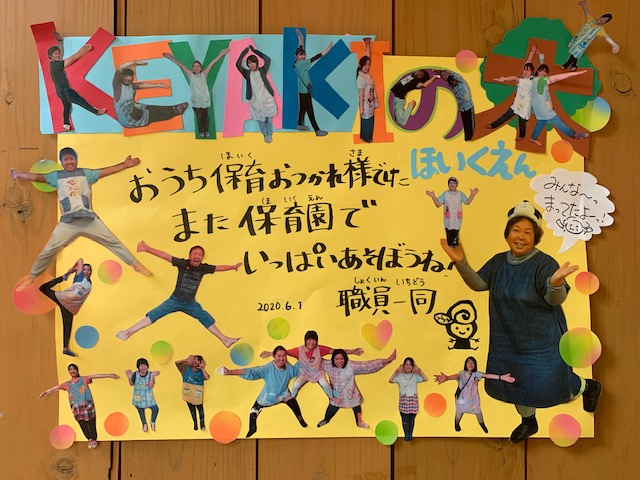 KEYAKIの木
ほいくえん
おうち保育おつかれ様でした
ほいく
さま
また保育園で
ほいくえん
いっぱいあそぼうね!
職員一同
しょくいん いちどう
2020.6.1
みんな〜っ
まってたよーっ!